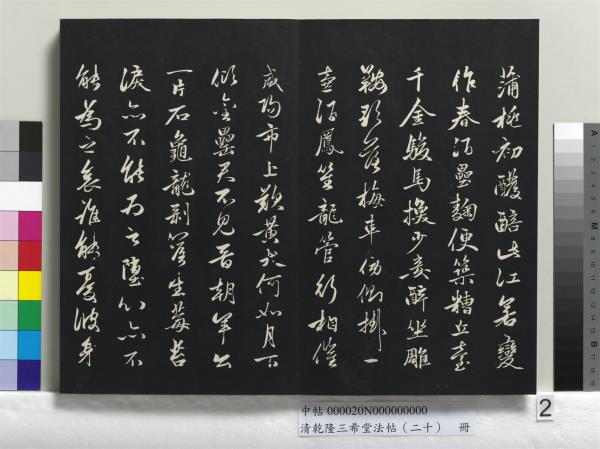 蒲桃初醱醅此江若變
作春酒壘麴便築糟丘臺
千金駿馬換少妾醉坐雕
鞍歌落梅車傍側掛一
壺酒鳳笙龍管行相催
咸陽市上歎黃犬何如月下
傾金罍君不見晉朝羊公
一片石龜龍剝落生莓苔
淚亦不能為之墮心亦不
能為之哀誰能憂彼身
中帖 000020N000000000
清乾隆三希堂法帖(二十) 冊
2